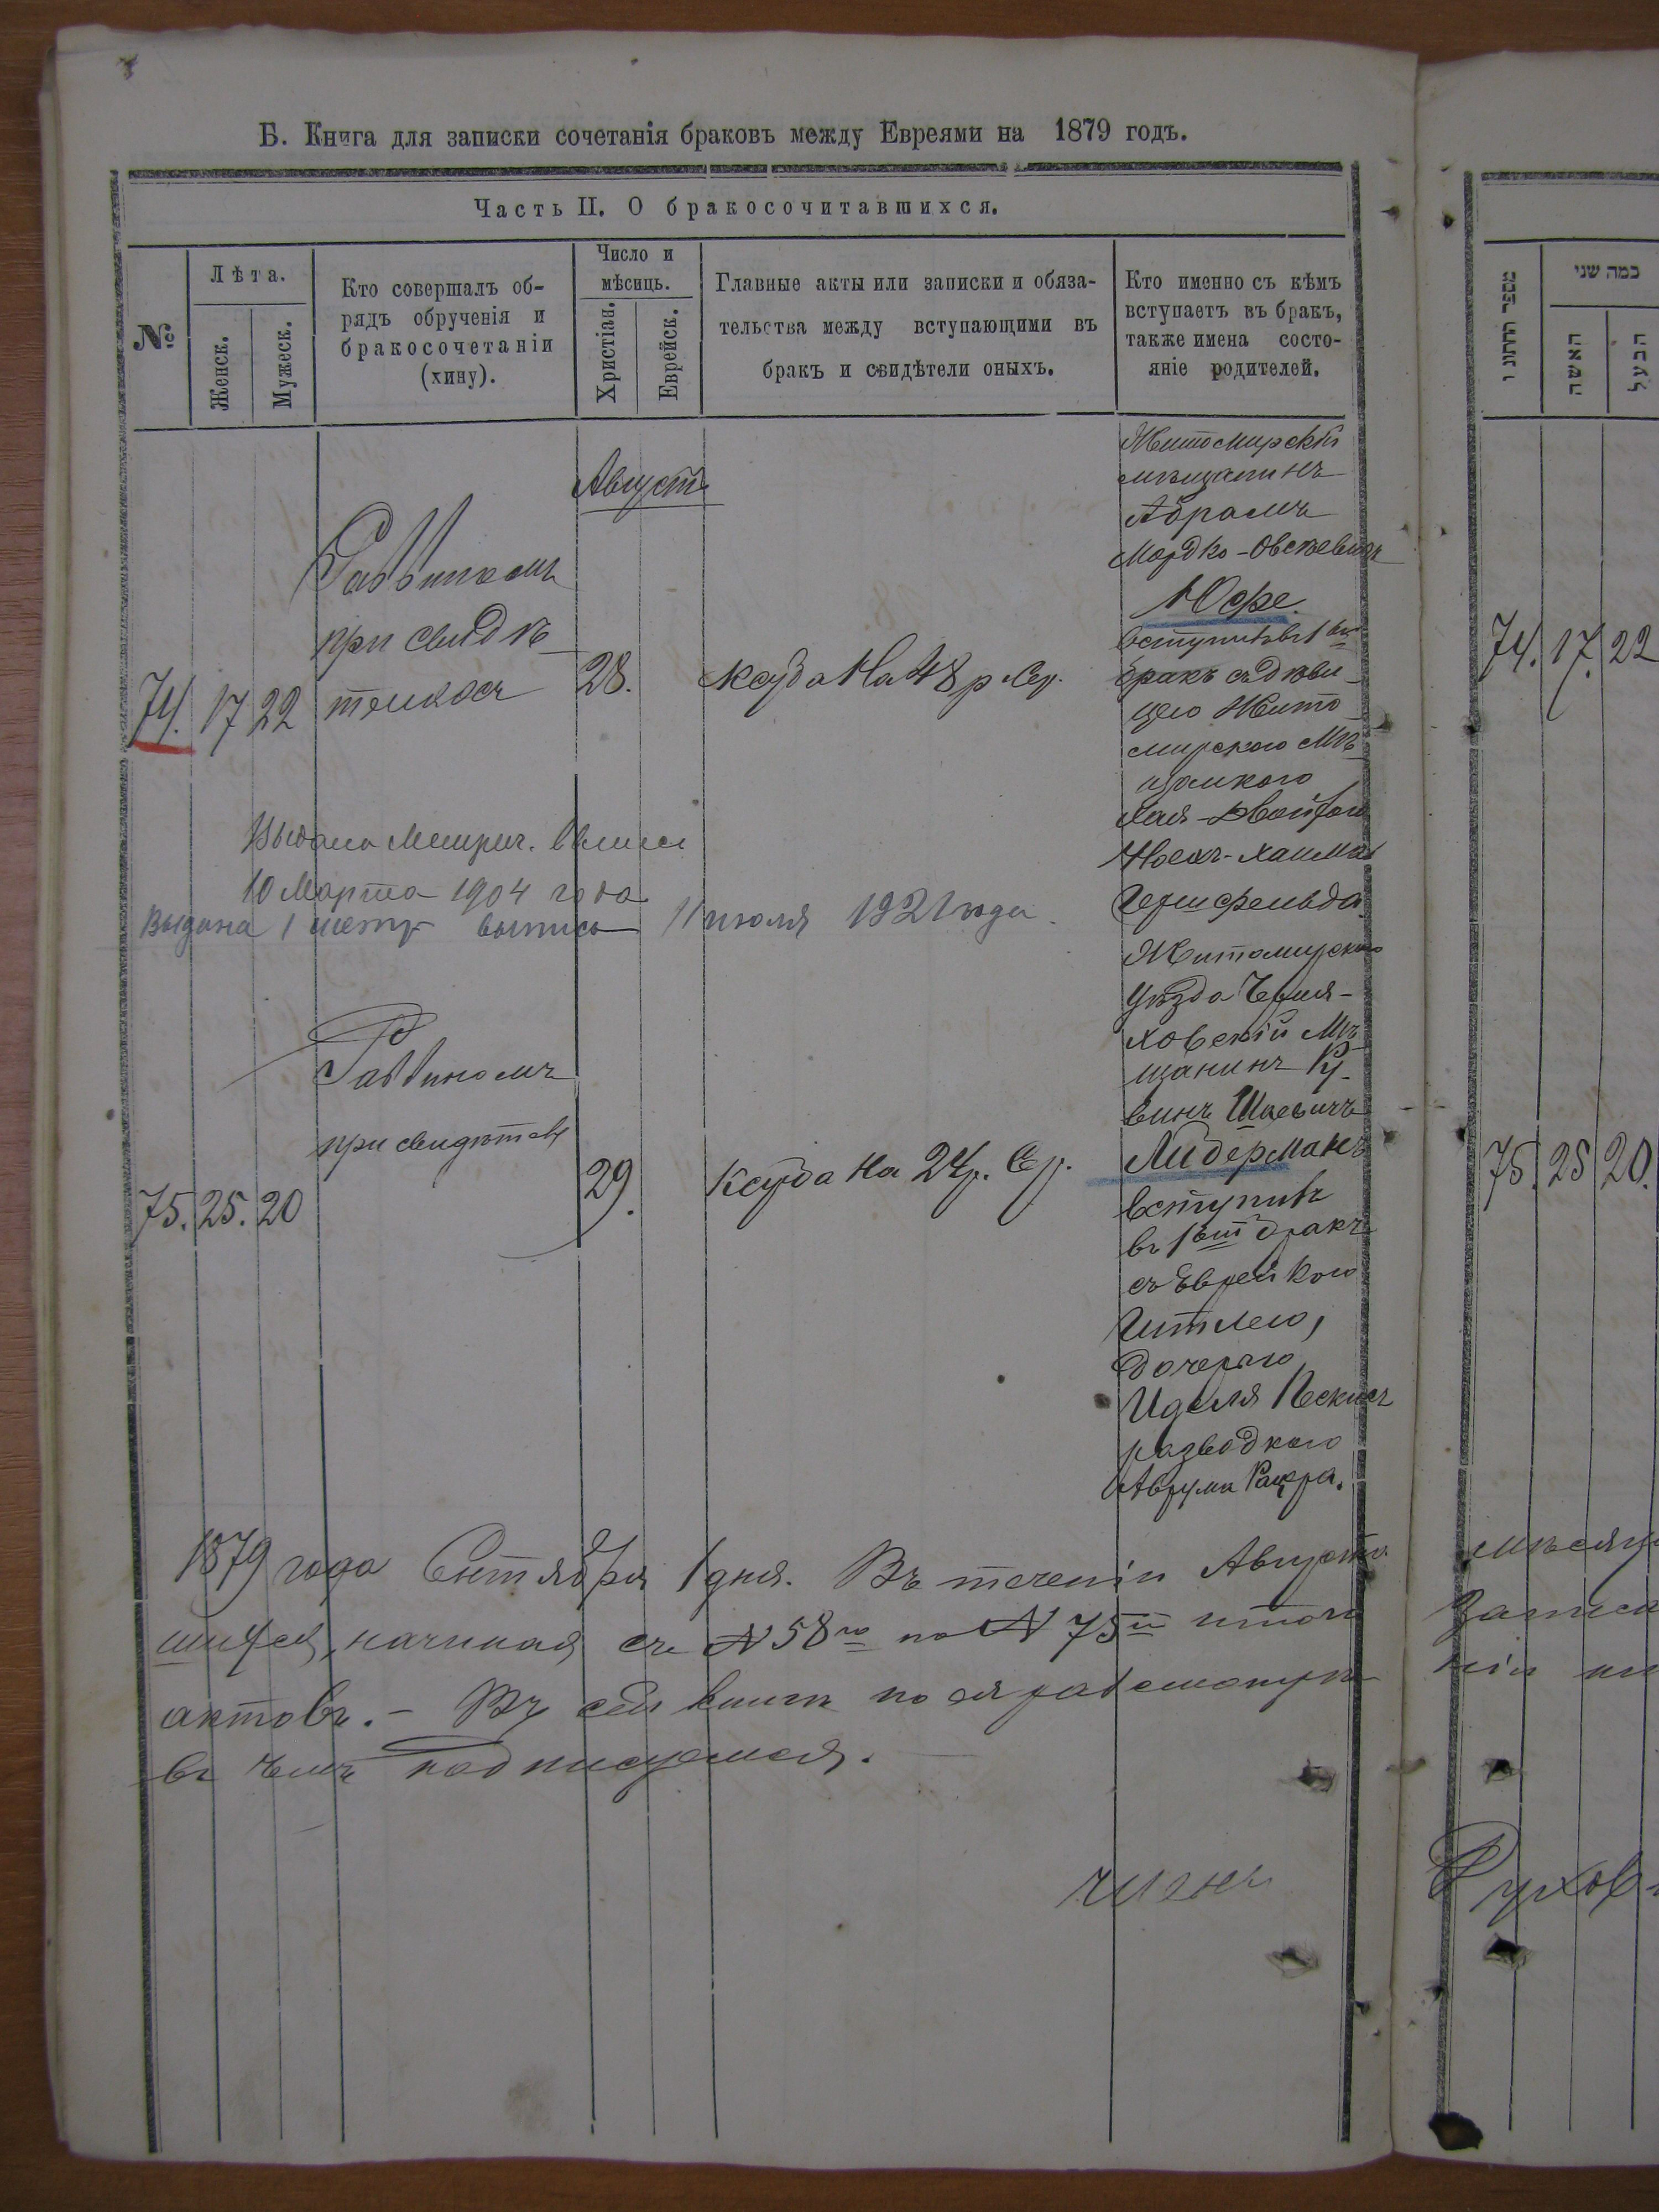 Б. Книга для записки сочетанія браковъ между Евреями на 1879 годъ.
Часть II. О бракосочитавшихся.
№
Лѣта.
Женск.
Мужеск.
Кто совершалъ об-
рядъ обрученія и
бракосочетаніи
(хину).
Число и
мѣсяць.
Христіан.
Еврейск.
Главные акты или записки и обяза-
тельства между вступающими въ
бракъ и свидѣтели оныхъ.
Кто именно съ кѣмъ
вступаетъ въ бракъ,
также имена состо-
яніе родителей.
מספר החתונו
כמה שני
האשה
הבעל
Августъ
74. 17 22
Раввиномъ
при свидѣ-
теляхъ
28.
ксуба на 48 р. сер.
Житомирскій
мѣщанинъ
Абрамъ
Мордко-Овсѣевичъ
Юфе.
вступилъ въ 1й
бракъ съ дѣви-
цею Жито-
мирскою Мѣ-
щанкою
Хая-Двойрою
Ноехъ-Хаимова
Герцфельда.
74. 17. 22
Выдана Метрич. выпись
10 Марта 1904 года
Выдана 1 метр выпись 11 июля 1921 года.
75. 25. 20
Раввиномъ
при свидѣтел.
29.
Ксуба на 24 р. Сер.
Житомирскаго
Уѣзда Черня-
ховскій Мѣ-
щанинъ Ру-
винъ
Лидерманъ
вступивъ
въ 1вый бракъ
съ Еврейкою
Итлею,
дочерью
Иделя
разводкою
Аврума
75. 25 20.
1879 года Сентября 1 дня. Въ теченіи Августа мѣсяца
шихся, начиная съ № 58го по № 75й итого записа
актовъ. – Въ сей книгѣ по ея разсмотрѣ ніи
въ чемъ подписуемся.
Духов-